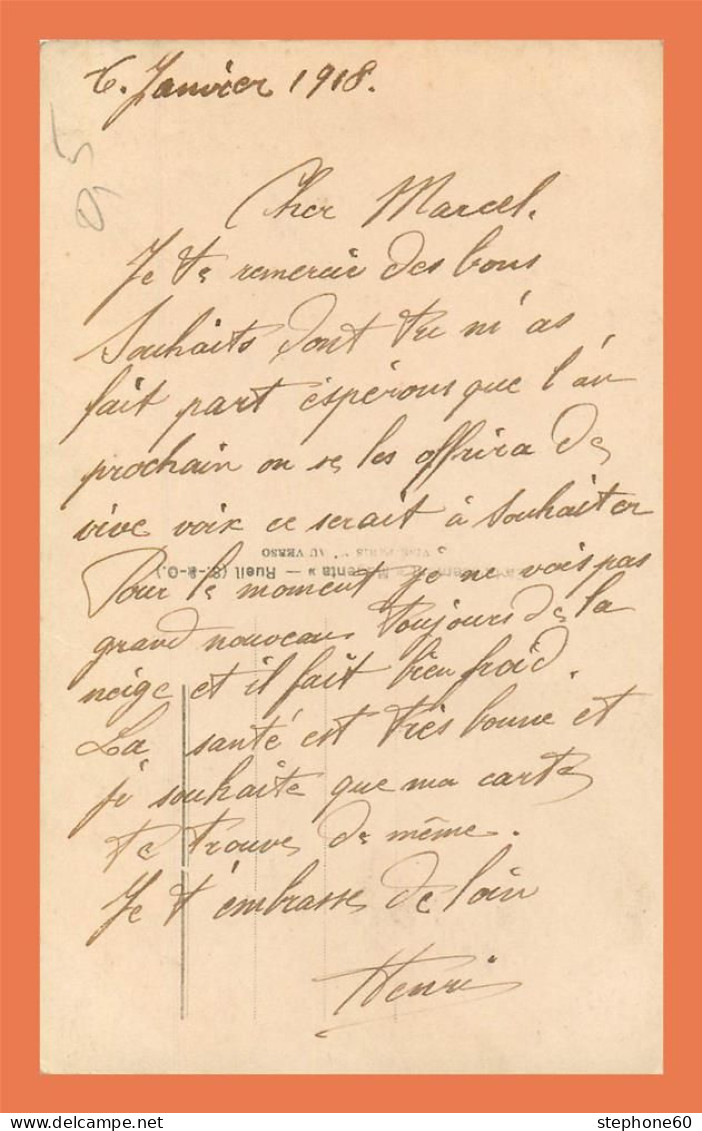 6. Janvier 1918.
0,5
Cher Marcel.
Je te remercie des bons
Souhaits dont tu m'as
fait part éspérons que l'an
prochain on se les offrira de
vive voix ce serait à souhaiter
VISÉ PARIS N° AU VERSO
« Magenta » — Rueil (S.-&-O.)
Pour le moment je ne vois pas
grand nouveau toujours de la
neige et il fait bien froid.
La santé est très bonne et
je souhaite que ma carte
te trouve de même.
Je t'embrasse de loin
Henri
stephone60